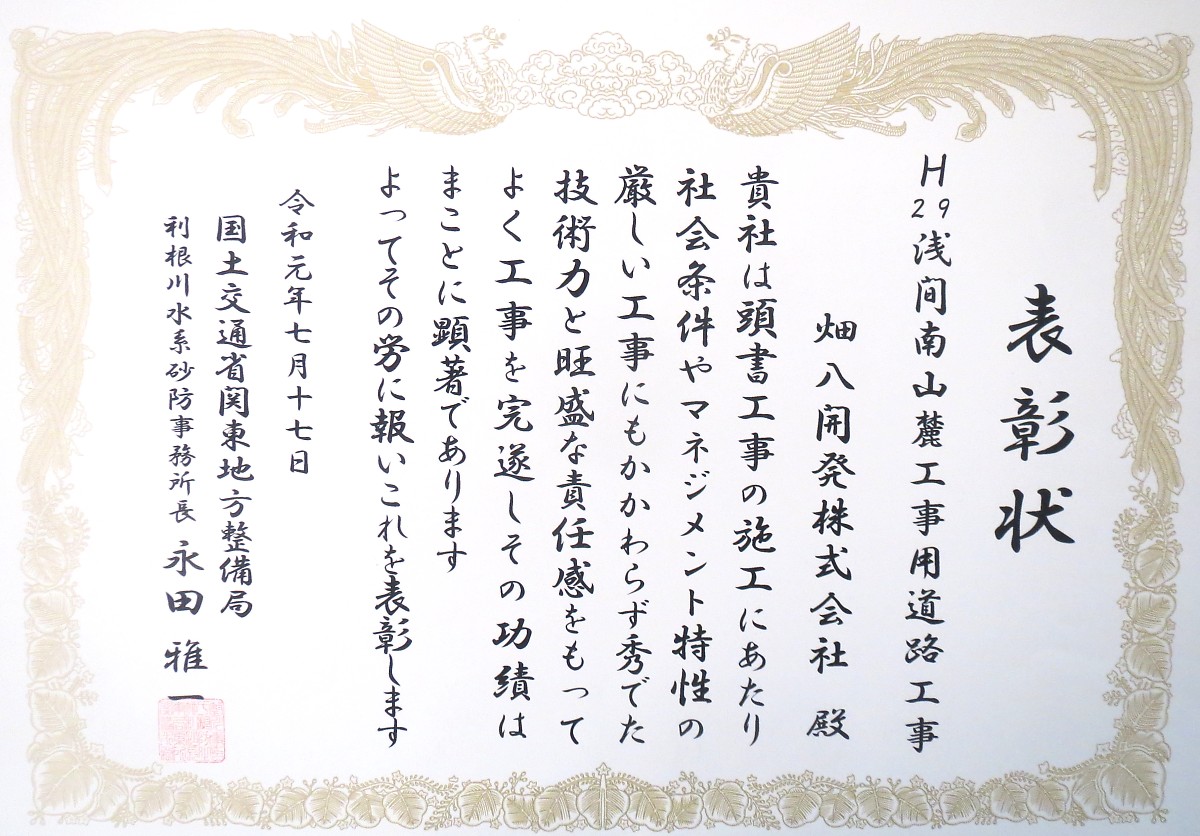 表彰状
H29浅間南山麓工事用道路工事
畑八開発株式会社 殿
貴社は頭書工事の施工にあたり
社会条件やマネジメント特性の
厳しい工事にもかかわらず秀でた
技術力と旺盛な責任感をもって
よく工事を完遂しその功績は
まことに顕著であります
よってその労に報いこれを表彰します
令和元年七月十七日
国土交通省関東地方整備局
利根川水系砂防事務所長 永田 雅一